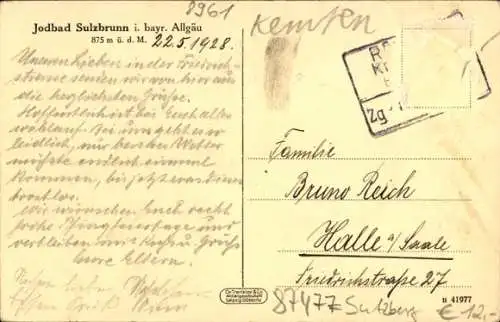 8961
Kempten
Jodbad Sulzbrunn i. bayr. Allgäu
875 m ü. d. M. 22.5.1928.
Unseren Lieben in der Friedrich-
strasse senden wir von hier aus
die herzlichsten Grüsse.
Hoffentlich ist bei Euch alles
wohlauf. Bei uns geht es so
leidlich, nur besseres Wetter
müsste endlich einmal
kommen, bis jetzt war dieses
trostlos.
Wir wünschen Euch recht
frohe Pfingstfeiertage und
verbleiben mit Kuss u. Gruss
Eure Eltern.
Zg
Familie
Bruno Reich
Halle a/Saale
Friedrichstraße 27
Dr. Trenkler & Co.
u 41977
87477 Sulzberg € 12,-